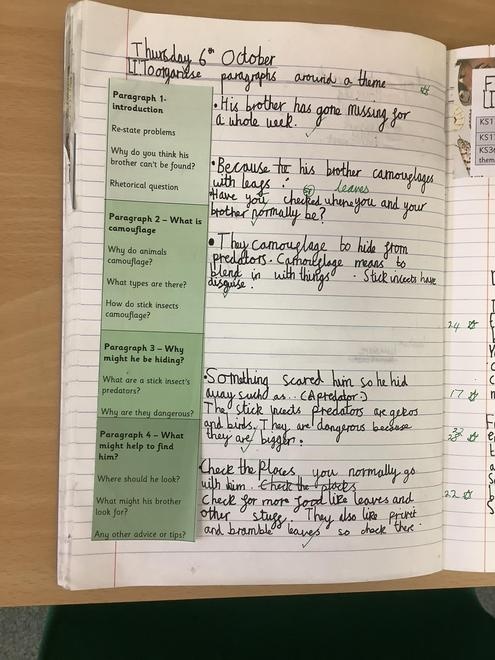 Thursday 6th October
LI To organise paragraphs around a theme
Paragraph 1-
introduction
Re-state problems
Why do you think his
brother can't be found?
Rhetorical question
• His brother has gone missing for
a whole week.
• Because his brother camouflages
with leags. leaves
Have you checked where you and your
brother normally be?
Paragraph 2 – What is
camouflage
Why do animals
camouflage?
What types are there?
How do stick insects
camouflage?
• They camouflage to hide from
predators. Camouflage means to
blend in with things. Stick insects have
disguise.
Paragraph 3 – Why
might he be hiding?
What are a stick insect's
predators?
Why are they dangerous?
• Something scared him so he hid
away such as... (A predator.)
The stick insects predators are geckos
and birds. They are dangerous because
they are bigger.
Paragraph 4 – What
might help to find
him?
Where should he look?
What might his brother
look for?
Any other advice or tips?
Check the places you normally go
with him. Check the places
Check for more food like leaves and
other stuff. They also like privet
and bramble leaves so check there.
KS1
KS1
KS3
them
24
17
23
22